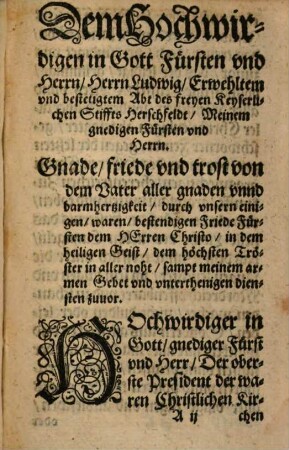 Dem Hochwir-
digen in Gott Fürsten vnd
Herrn/ Herrn Ludwig/ Erwehltem
vnd bestetigtem Abt des freyen Keyserli-
chen Stiffts Herschfeldt/ Meinem
gnedigen Fürsten vnd
Herrn.
Gnade/ friede vnd trost von
dem Vater aller gnaden vnnd
barmhertzigkeit/ durch vnsern eini-
gen/ waren/ bestendigen Friede Für-
sten dem HErren Christo/ in dem
heiligen Geist/ dem höchsten Trö-
ster in aller noht/ sampt meinem ar-
men Gebet vnd vnterthenigen dien-
sten zuuor.
HOchwirdiger in
Gott/ gnediger Fürst
vnd Herr/ Der ober-
ste President der wa-
ren Christlichen Kir-
A ij chen